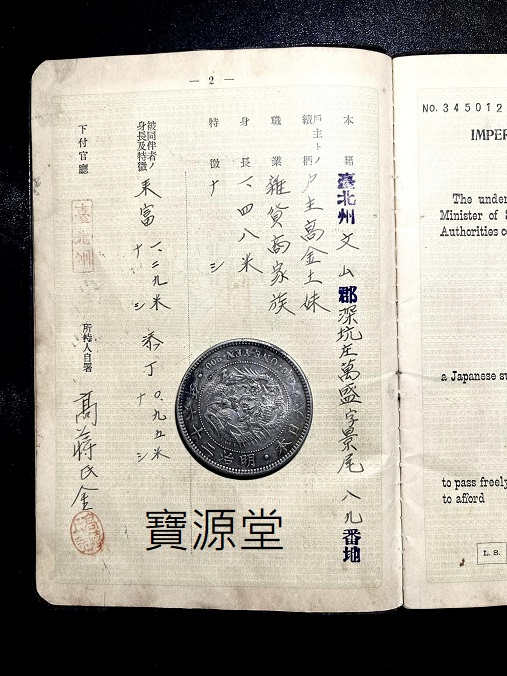 — 2 —
本籍 臺北州文山郡深坑庄萬盛字景尾八九番地
戶主トノ續柄 戶主高金土妹
職業 雜貨商家族
身長 一、四八米
特徵 ナシ
被同伴者ノ身長及特徵 来富 一、二九米 ナシ 添丁 〇、九五米 ナシ
下付官廳 臺北州
所持人自署 高蔣氏金
寶源堂
No. 345012
IMPE
The under
Minister of
Authorities co
a Japanese su
to pass freely
to afford
L. S.